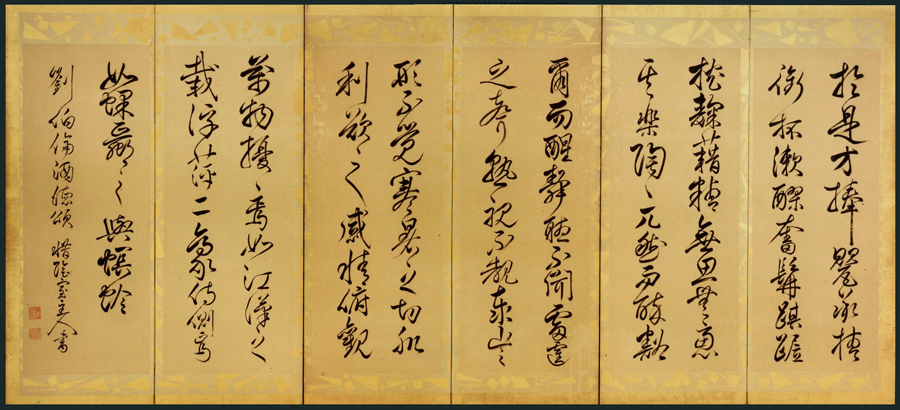 於是方捧甖承槽
銜杯漱醪奮髯踑踞
枕麴藉糟無思無慮
其樂陶〻兀然而醉豁
爾而醒靜聽不聞雷霆
之聲熟視不覩泰山之
形不覺寒暑之切肌
利欲之感情俯觀
萬物擾〻焉如江漢之
載浮萍二豪侍側焉
如蜾蠃之與螟蛉
劉伯倫酒德頌 惜陰室主人書